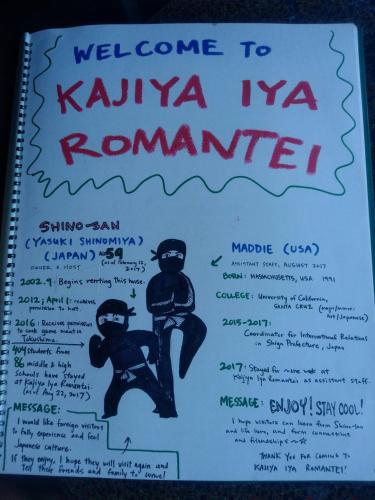 WELCOME TO
KAJIYA IYA
ROMANTEI
SHINO-SAN
(YASUKI SHINOMIYA)
(JAPAN) AGE 59
(as of February 12, 2017)
OWNER & HOST
2002.9: Begins renting this house.
2012; April 1: receives
permission to host.
2016: Receives permission
to cook game meat in
Tokushima.
404 students from
86 middle & high
schools have stayed
at Kajiya Iya Romantei.
(as of Aug 22, 2017)
MESSAGE:
I would like foreign visitors
to fully experience and feel
Japanese culture.
If they enjoy, I hope they will visit again and
tell their friends and family to come!
MADDIE (USA)
ASSISTANT STAFF, AUGUST 2017
BORN: MASSACHUSETTS, USA 1991
COLLEGE: University of California,
SANTA CRUZ
Art/Japanese)
2015-2017:
Coordinator for International Relations
in Shiga Prefecture, Japan
2017: Stayed for one week at
Kajiya Iya Romantei as assistant staff.
MESSAGE: ENJOY! STAY COOL!
I hope visitors can learn from Shino-san
and life here, and form connections
and friendships
THANK YOU FOR COMING TO
KAJIYA IYA ROMANTEI!